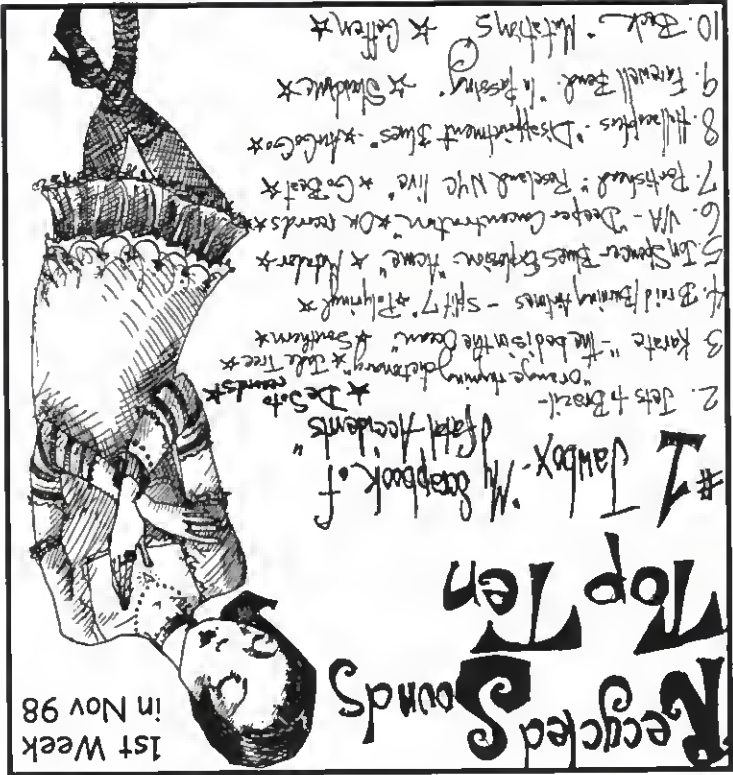 Recycled Sounds
Top Ten
1st Week
in Nov 98
#1 Jawbox - "My Scrapbook of
fatal Accidents"
★ DeSoto
records★
2. Jets to Brazil -
"Orange rhyming dictionary" ★ Jade Tree ★
3 Karate - "the bed is in the Ocean" ★ Southern ★
4. Braid/Burning Airlines - Split 7" ★ Polyvinyl ★
5 Jon Spencer Blues Explosion - "Acme" ★ Matador ★
6. V/A - "Deeper Concentration" ★ OM records ★
7. Portishead - "Roseland NYC live" ★ Go Beat ★
8. Hellacopters - "Disappointment Blues" - ★ AnCoGo ★
9. Farewell Bend - "In Passing" ★ Slowdime ★
10. Beck - "Mutations" ★ Geffen ★